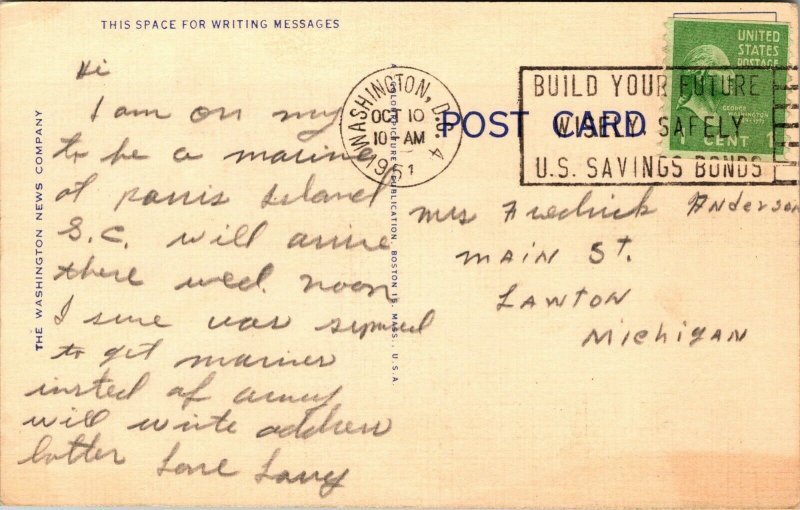 THIS SPACE FOR WRITING MESSAGES
Hi
I am on my
to be a marine
at parris Island
S.C. will arrive
there wed. noon
I sure was
to get marines
insted of army
will write address
latter Love Larry
THE WASHINGTON NEWS COMPANY
PUBLICATION, BOSTON 15, MASS., U.S.A.
WASHINGTON, D.C. 4
OCT 10
10 AM
1951
POST CARD
BUILD YOUR FUTURE
WISELY SAFELY
U.S. SAVINGS BONDS
UNITED
STATES
POSTAGE
GEORGE
WASHINGTON
1 CENT 1
Mrs Fredrick Anderson
MAIN ST.
LAWTON
Michigan